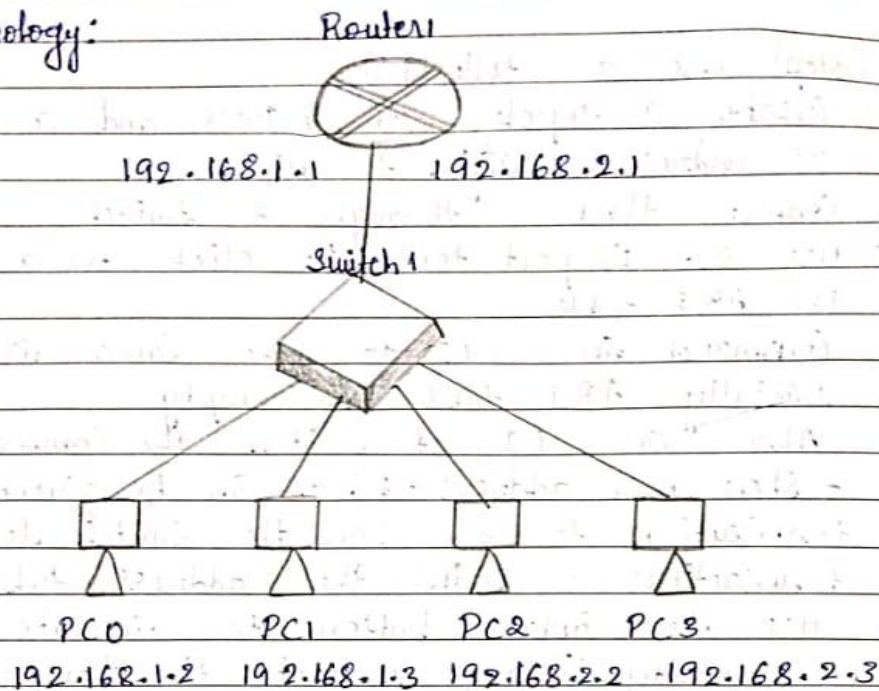 ology: Router1
192.168.1.1 192.168.2.1
Switch 1
PC0 PC1 PC2 PC3
192.168.1.2 192.168.1.3 192.168.2.2 192.168.2.3